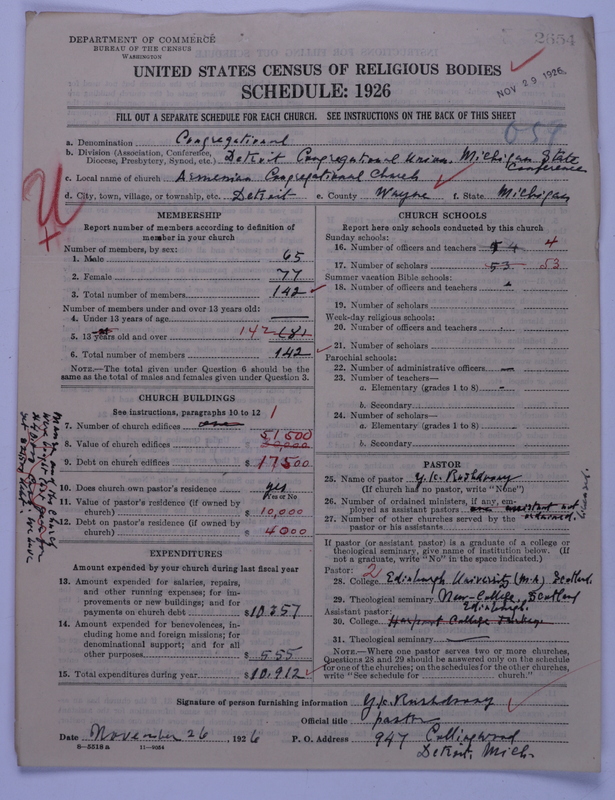 DEPARTMENT OF COMMERCE
BUREAU OF THE CENSUS
WASHINGTON
2654
UNITED STATES CENSUS OF RELIGIOUS BODIES
NOV 29 1926
SCHEDULE: 1926
FILL OUT A SEPARATE SCHEDULE FOR EACH CHURCH. SEE INSTRUCTIONS ON THE BACK OF THIS SHEET
059
a. Denomination Congregational
b. Division (Association, Conference, Diocese, Presbytery, Synod, etc.) Detroit Congregational Union, Michigan State Conference
c. Local name of church Armenian Congregational Church
d. City, town, village, or township, etc. Detroit e. County Wayne f. State Michigan
MEMBERSHIP
Report number of members according to definition of
member in your church
Number of members, by sex:
1. Male 65
2. Female 77
3. Total number of members 142
Number of members under and over 13 years old:
4. Under 13 years of age
5. 13 years old and over 142
6. Total number of members 142
NOTE.—The total given under Question 6 should be
same as the total of males and females given under Question 3.
CHURCH BUILDINGS
See instructions, paragraphs 10 to 12
7. Number of church edifices one 1
8. Value of church edifices $ 51,500
9. Debt on church edifices $ 17500
10. Does church own pastor's residence? yes
Yes or No
11. Value of pastor's residence (if owned by
church) $ 10,000
12. Debt on pastor's residence (if owned by
church) $ 4000
EXPENDITURES
Amount expended by your church during last fiscal year
13. Amount expended for salaries, repairs,
and other running expenses; for im-
provements or new buildings; and for
payments on church debt $ 10357
14. Amount expended for benevolences, in-
cluding home and foreign missions; for
denominational support; and for all
other purposes $ 555
15. Total expenditures during year $ 10,912
CHURCH SCHOOLS
Report here only schools conducted by this church
Sunday schools:
16. Number of officers and teachers 4 4
17. Number of scholars 53 53
Summer vacation Bible schools:
18. Number of officers and teachers
19. Number of scholars
Week-day religious schools:
20. Number of officers and teachers
21. Number of scholars
Parochial schools:
22. Number of administrative officers —
23. Number of teachers—
a. Elementary (grades 1 to 8) -
b. Secondary
24. Number of scholars—
a. Elementary (grades 1 to 8)
b. Secondary
PASTOR
25. Name of pastor Y. K. Rushdoony
(If church had no pastor, write "None")
26. Number of ordained ministers, if any, em-
ployed as assistant pastors one assistant not ordained.
27. Number of other churches served by the
pastor or his assistants
If pastor (or assistant pastor) is a graduate of a college or
theological seminary, give name of institution below. (If
not a graduate, write "No" in the space indicated.)
Pastor: 2
28. College Edinburgh University (M.A.) Scotland.
29. Theological seminary New College, Scotland
Edinburgh.
Assistant pastor:
30. College College
31. Theological seminary —
NOTE.—Where one pastor serves two or more churches,
Questions 28 and 29 should be answered only on the schedule
for one of the churches; on the schedules for the other churches,
write "See schedule for church."
Signature of person furnishing information Y. K. Rushdoony
Official title pastor
Date November 26, 1926 P. O. Address 947 Collingwood
Detroit, Mich.
8—5518a 11—9054